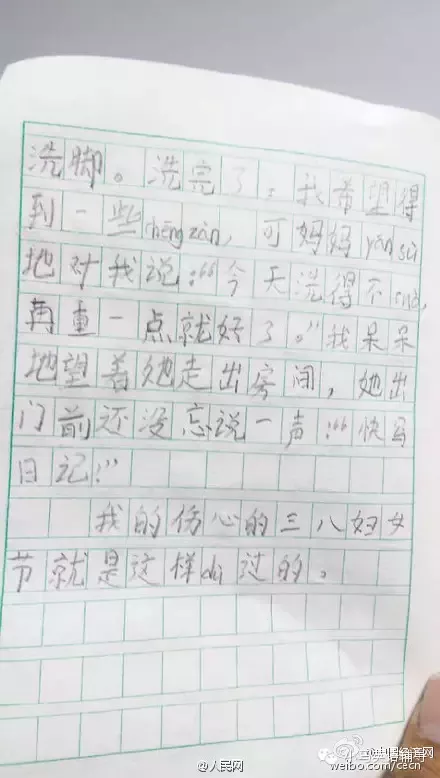 洗脚。洗完了，我希望得
到一些chēng zàn，可妈妈yán sù
地对我说：“今天洗得不cuò，
再重一点就好了。”我呆呆
地望着她走出房间，她出
门前还没忘说一声：“快写
日记！”
我的伤心的三八妇女
节就是这样dù过的。
@人民网
weibo.com/cecn